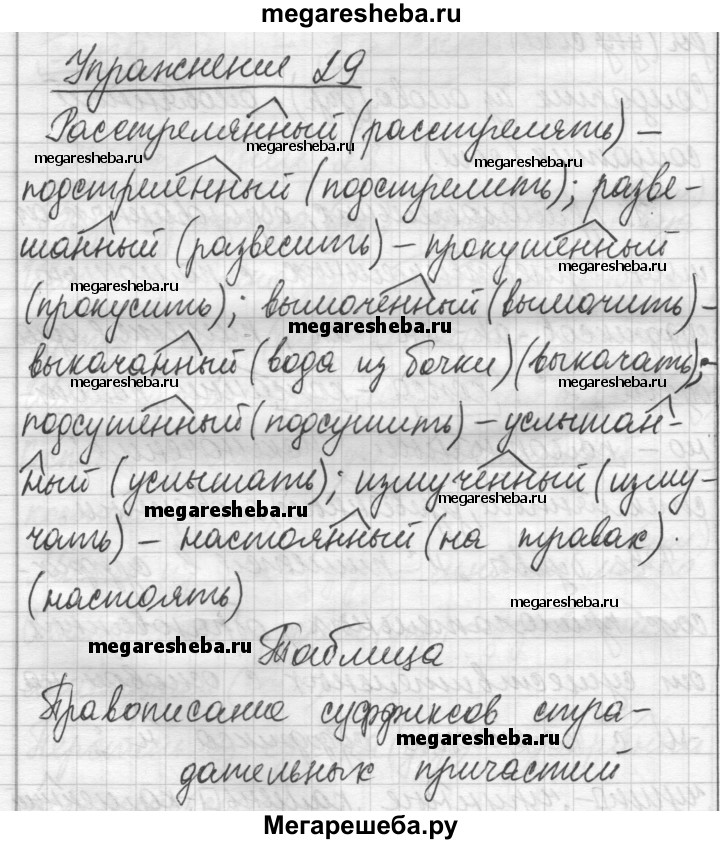 megaresheba.ru
Упражнение 29
Расстрелянный (расстрелять) –
megaresheba.ru megaresheba.ru
подстреленный (подстрелить); разве-
шанный (развесить) – прокушенный
megaresheba.ru megaresheba.ru
(прокусить); вымоченный (вымочить) –
megaresheba.ru
выкачанный (вода из бочки) (выкачать);
megaresheba.ru megaresheba.ru
подсушенный (подсушить) – услышан-
ный (услышать); измученный (изму-
megaresheba.ru megaresheba.ru
чать) – настоянный (на травах).
(настоять)
megaresheba.ru
megaresheba.ru Таблица
Правописание суффиксов стра-
megaresheba.ru
дательных причастий
Мегарешеба.ру